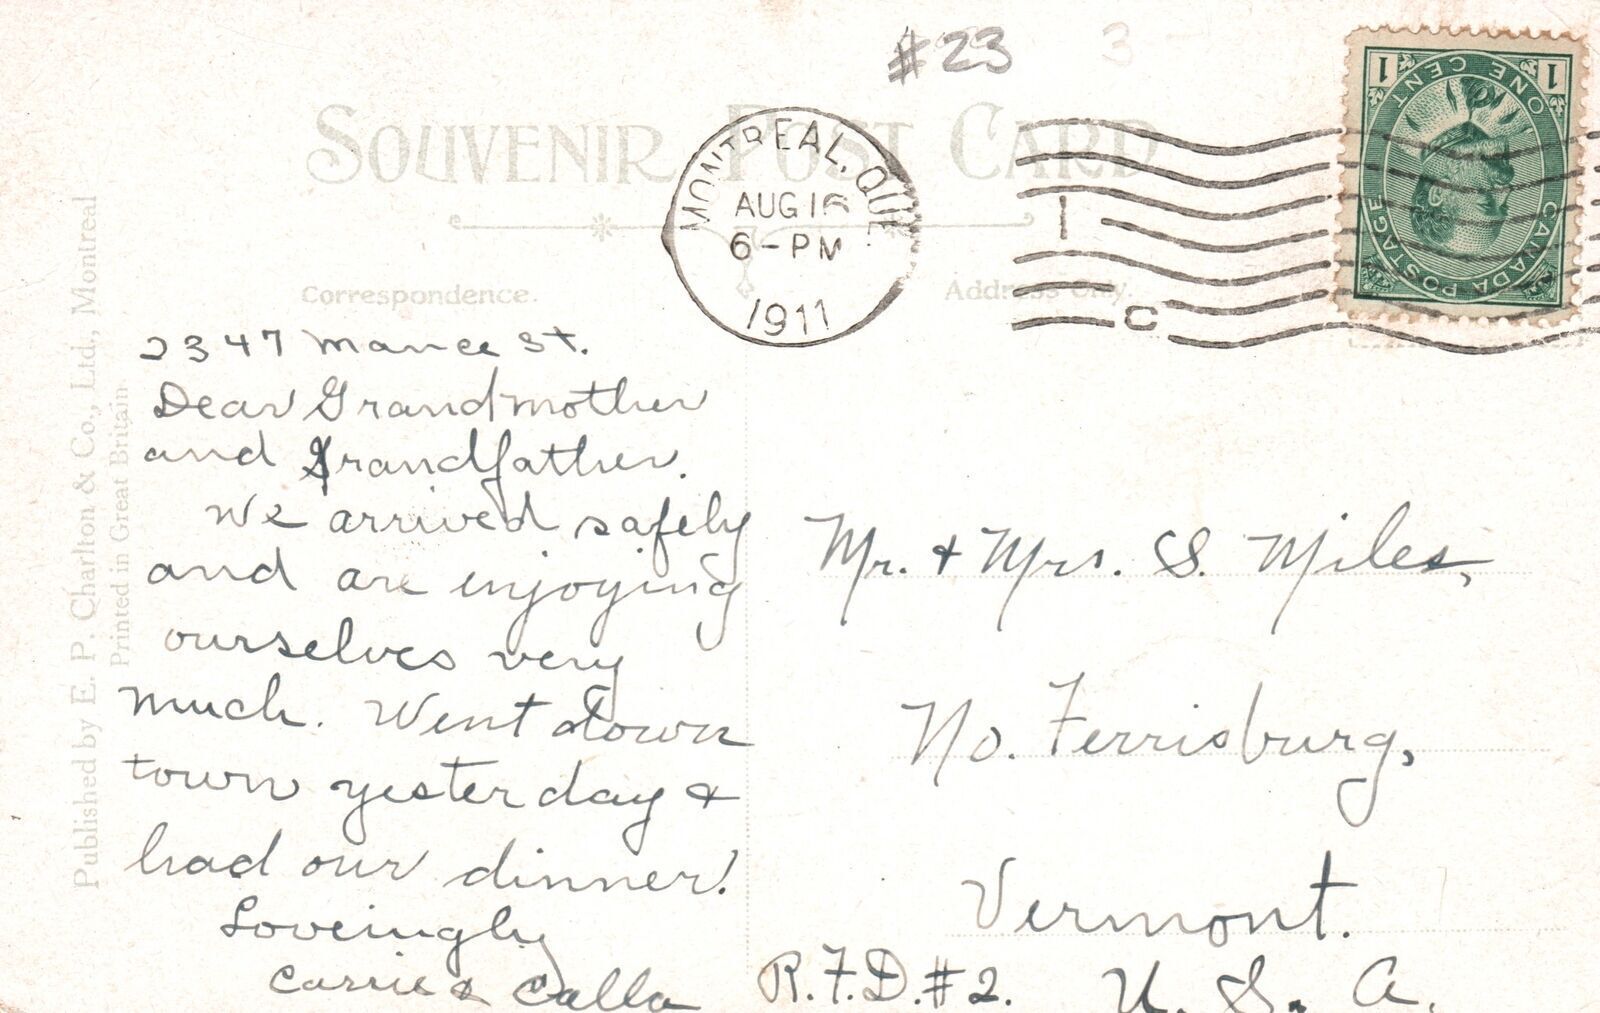 #23
SOUVENIR POST CARD
MONTREAL, QUE.
AUG 16
6-PM
1911
1
C
1 ONE CENT 1
CANADA POSTAGE
Correspondence.
Address Only.
Published by E. P. Charlton & Co., Ltd., Montreal
Printed in Great Britain
2347 Mance St.
Dear Grandmother
and Grandfather.
We arrived safely
and are enjoying
ourselves very
much. Went down
town yesterday &
had our dinner!
Loveingly
Carrie & Calla
Mr. & Mrs. S. Miles,
No. Ferrisburg,
Vermont.
R.F.D. #2. U. S. A.